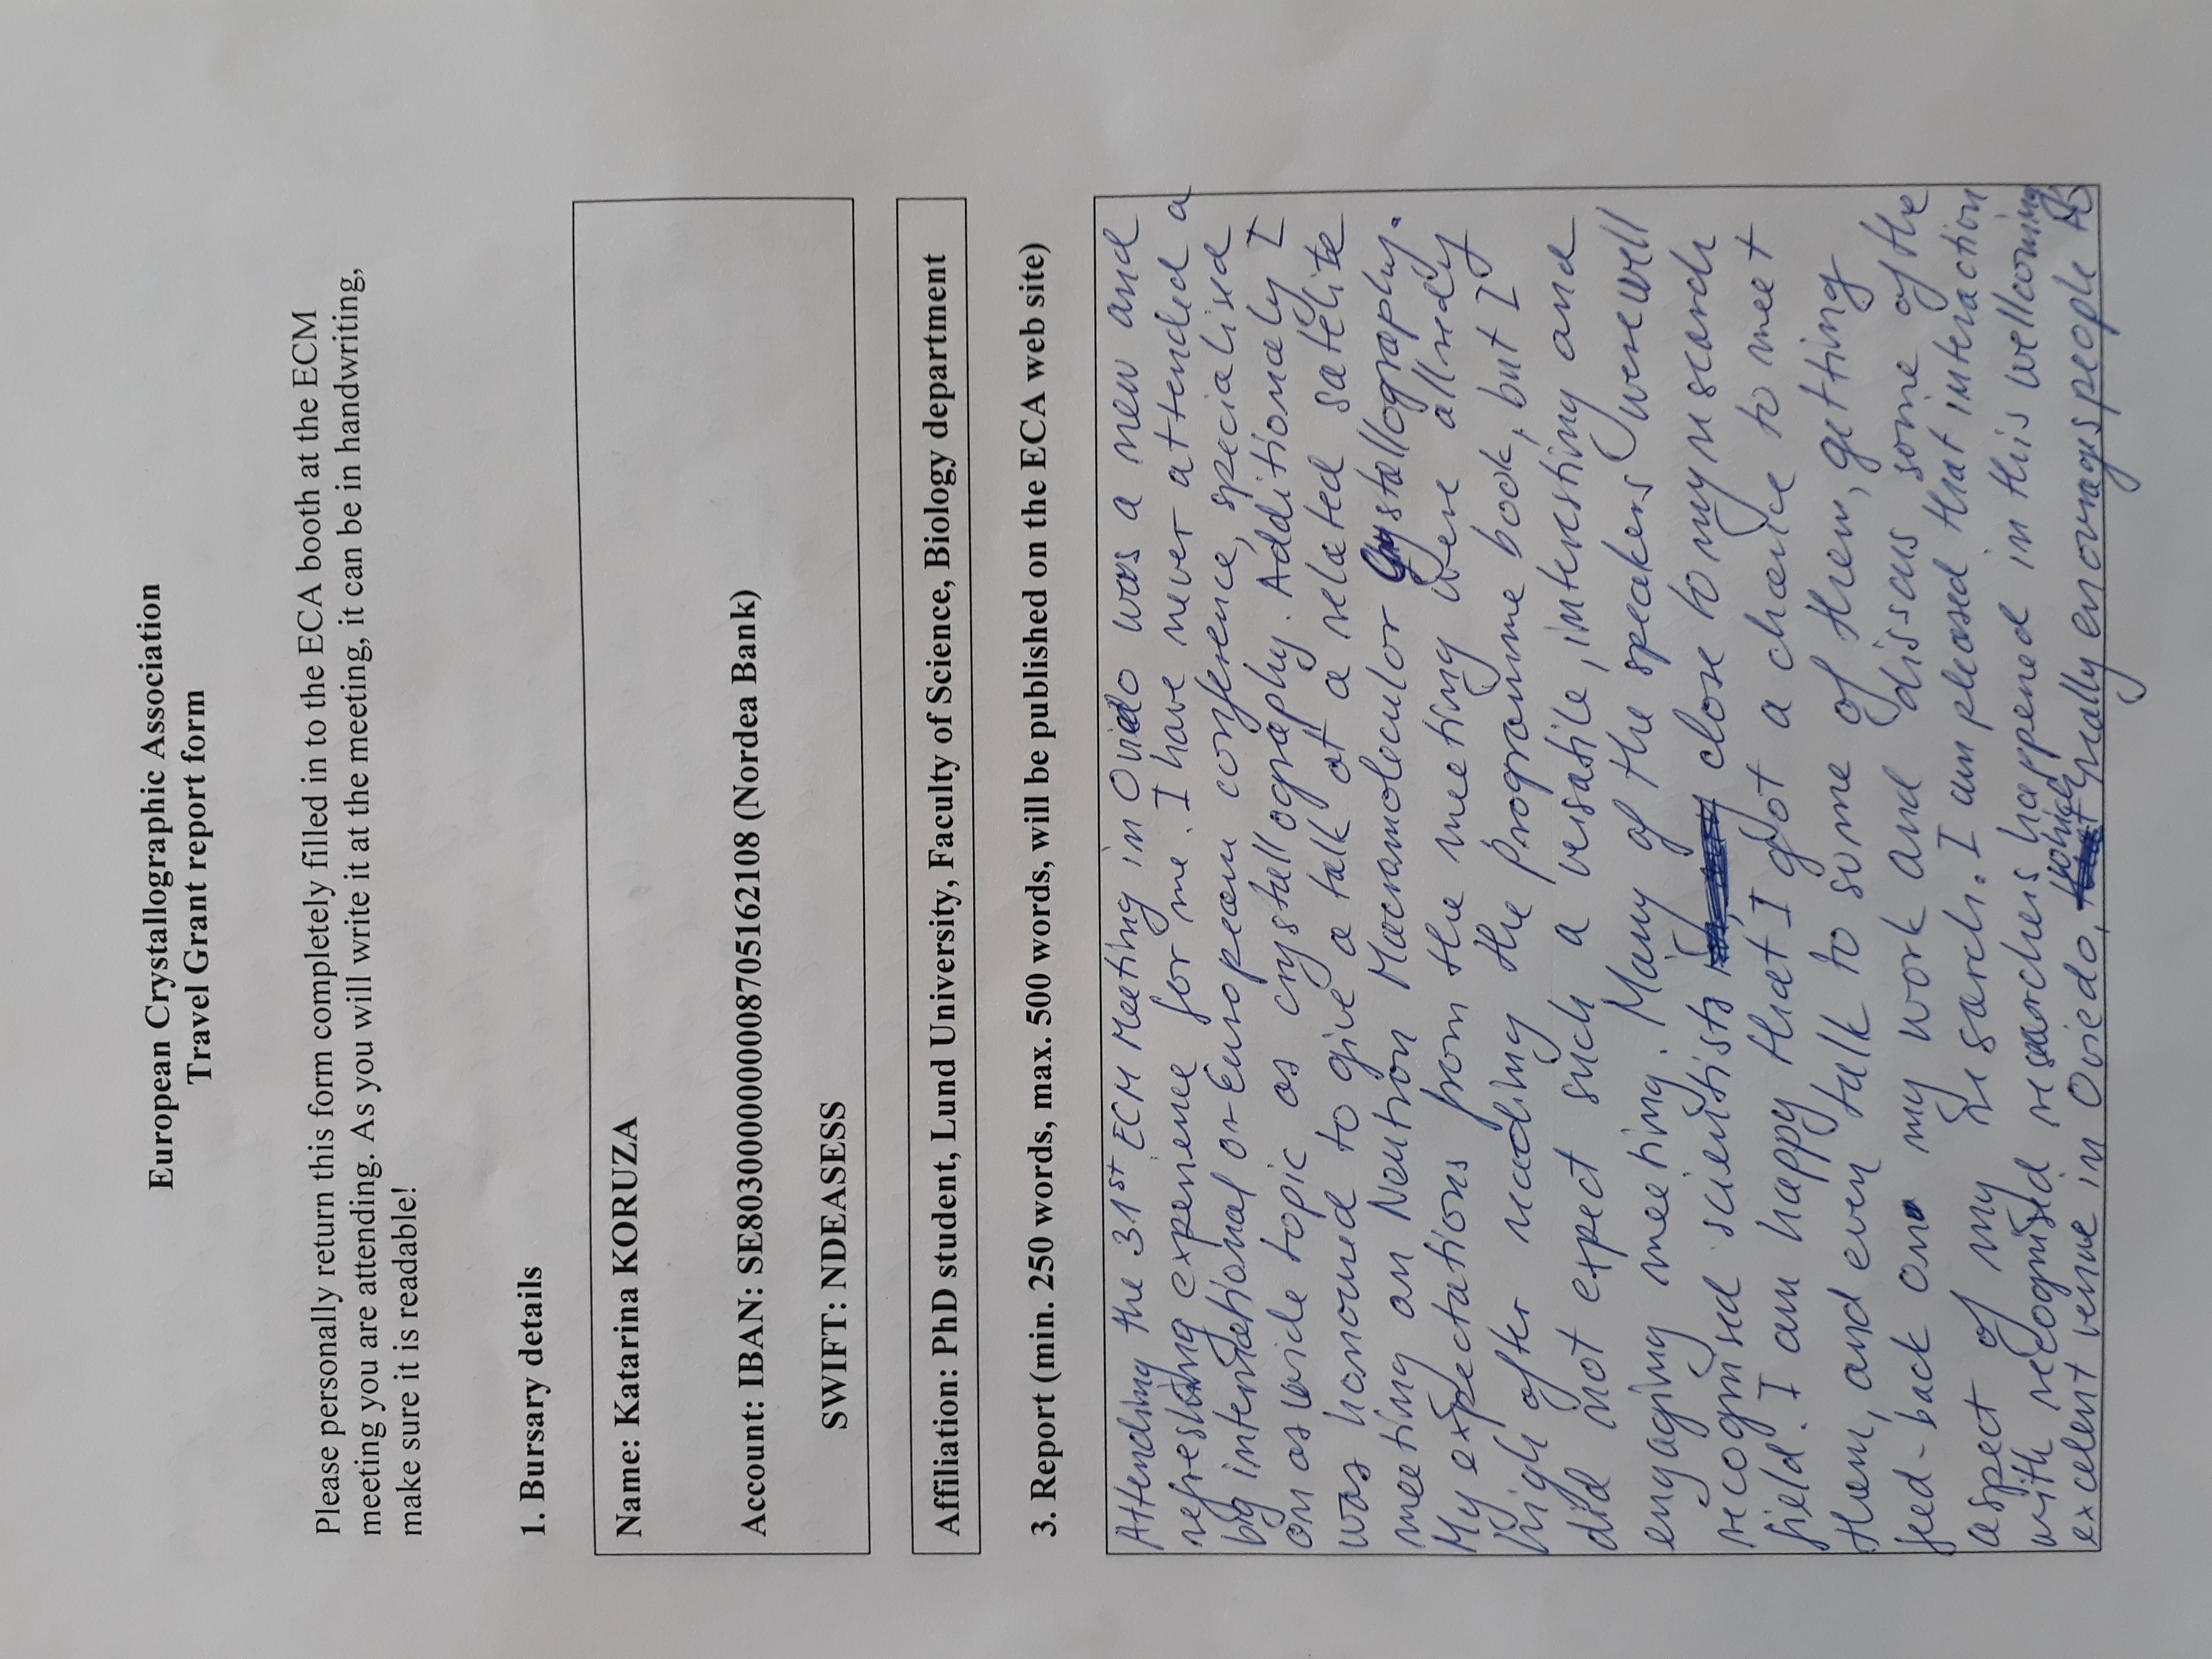 European Crystallographic Association
Travel Grant report form
Please personally return this form completely filled in to the ECA booth at the ECM
meeting you are attending. As you will write it at the meeting, it can be in handwriting,
make sure it is readable!
1. Bursary details
Name: Katarina KORUZA
Account: IBAN: SE8030000000008705162108 (Nordea Bank)
SWIFT: NDEASESS
Affiliation: PhD student, Lund University, Faculty of Science, Biology department
3. Report (min. 250 words, max. 500 words, will be published on the ECA web site)
Attending the 31st ECM Meeting in Oviedo was a new and
refreshing experience for me. I have never attended a
big international or European conference, specialised
on as wide topic as crystallography. Additionaly I
was honoured to give a talk at a related satelite
meeting on Neutron Macromolecular Crystallography.
My expectations from the meeting were allready
high after reading the Programme book, but I
did not expect such a versatile, interesting and
engaging meeting. Many of the speakers were well
recognised scientists, close to my research
field. I am happy that I got a chance to meet
them, and even talk to some of them, getting
feed-back on my work and discuss some of the
aspect of my research. I am pleased that interaction
with recognised researchers happened in this wellcoming
excelent venue in Oviedo, which really encourages people to